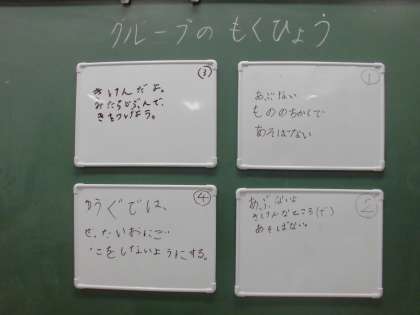 グループのもくひょう
③
きけんだよ。
みたらひなんで、
きをつけよう。
①
あぶない
もののちかくで
あそばない
④
ゆうぐでは、
ぜったいおにご
っこをしないようにする。
②
あぶないよ
きけんなところ(で)
あそばない